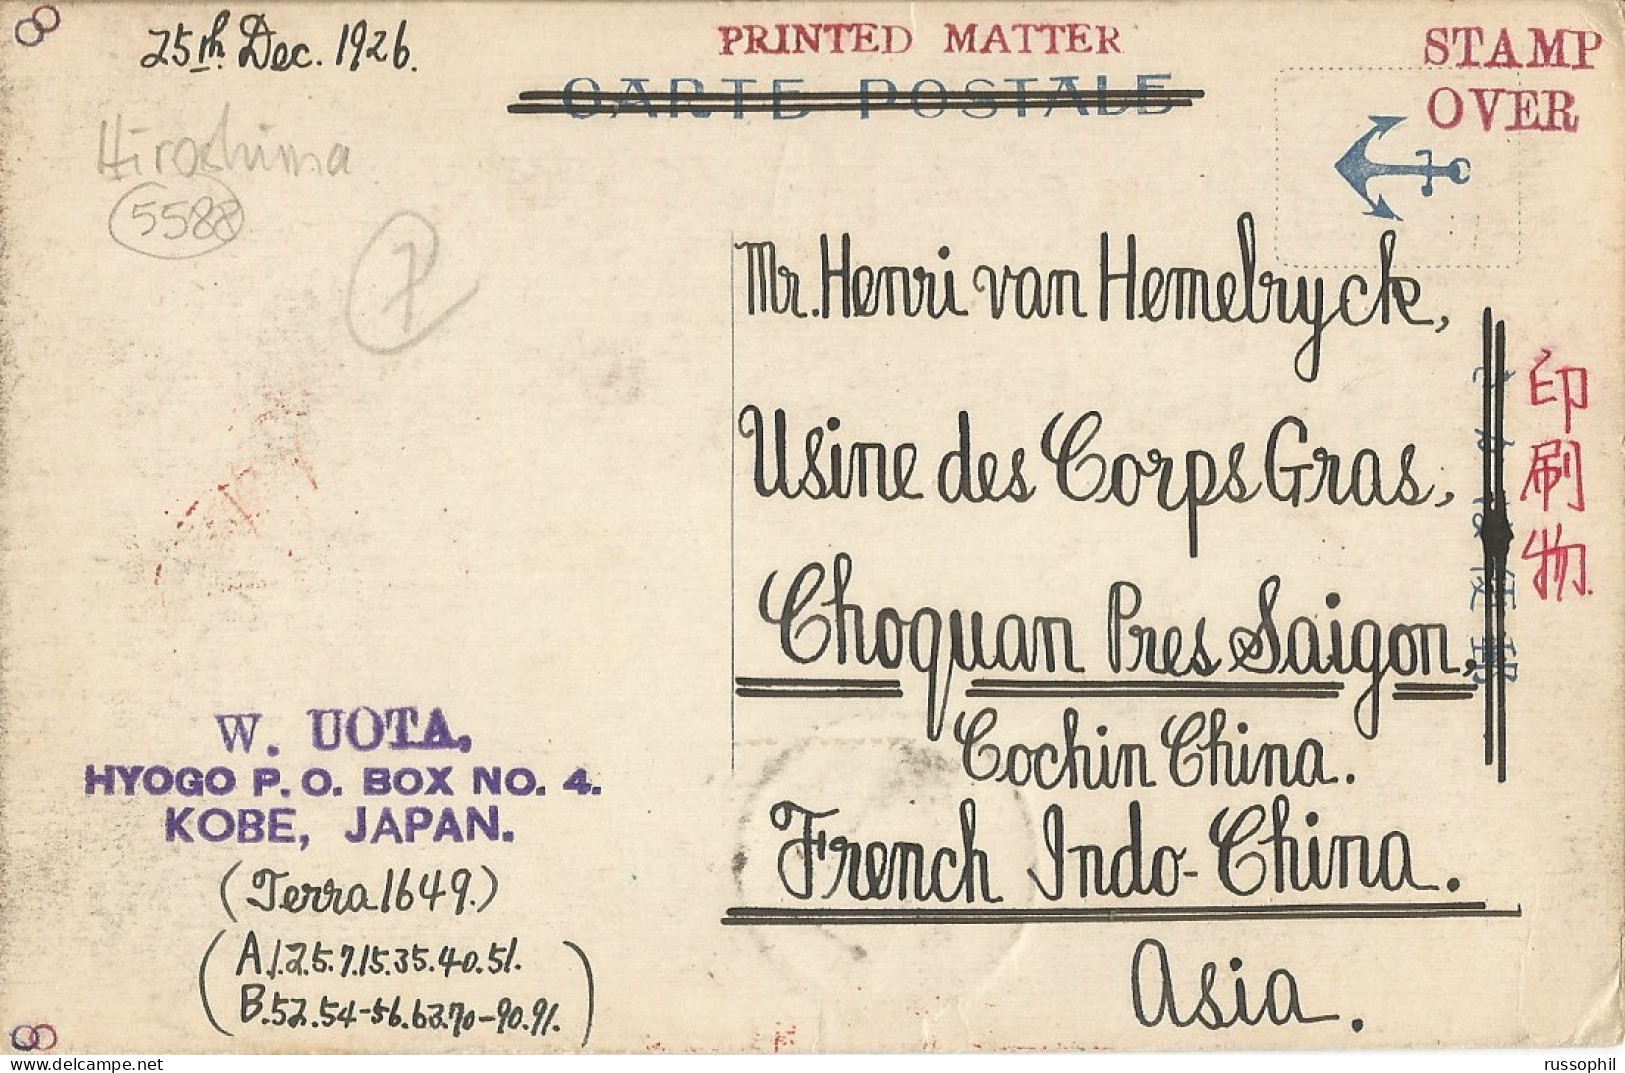 25th. Dec. 1926.
PRINTED MATTER
STAMP
OVER
CARTE POSTALE
Hiroshima
5588
Mr. Henri van Hemelryck,
Usine des Corps Gras,
Choquan Pres Saigon,
Cochin China.
French Indo-China.
Asia.
印刷物
W. UOTA,
HYOGO P. O. BOX NO. 4.
KOBE, JAPAN.
(Terra 1649.)
(A.1.2.5.7.15.35.40.51.
B.52.54-56.63.70-90.91.)
russophil